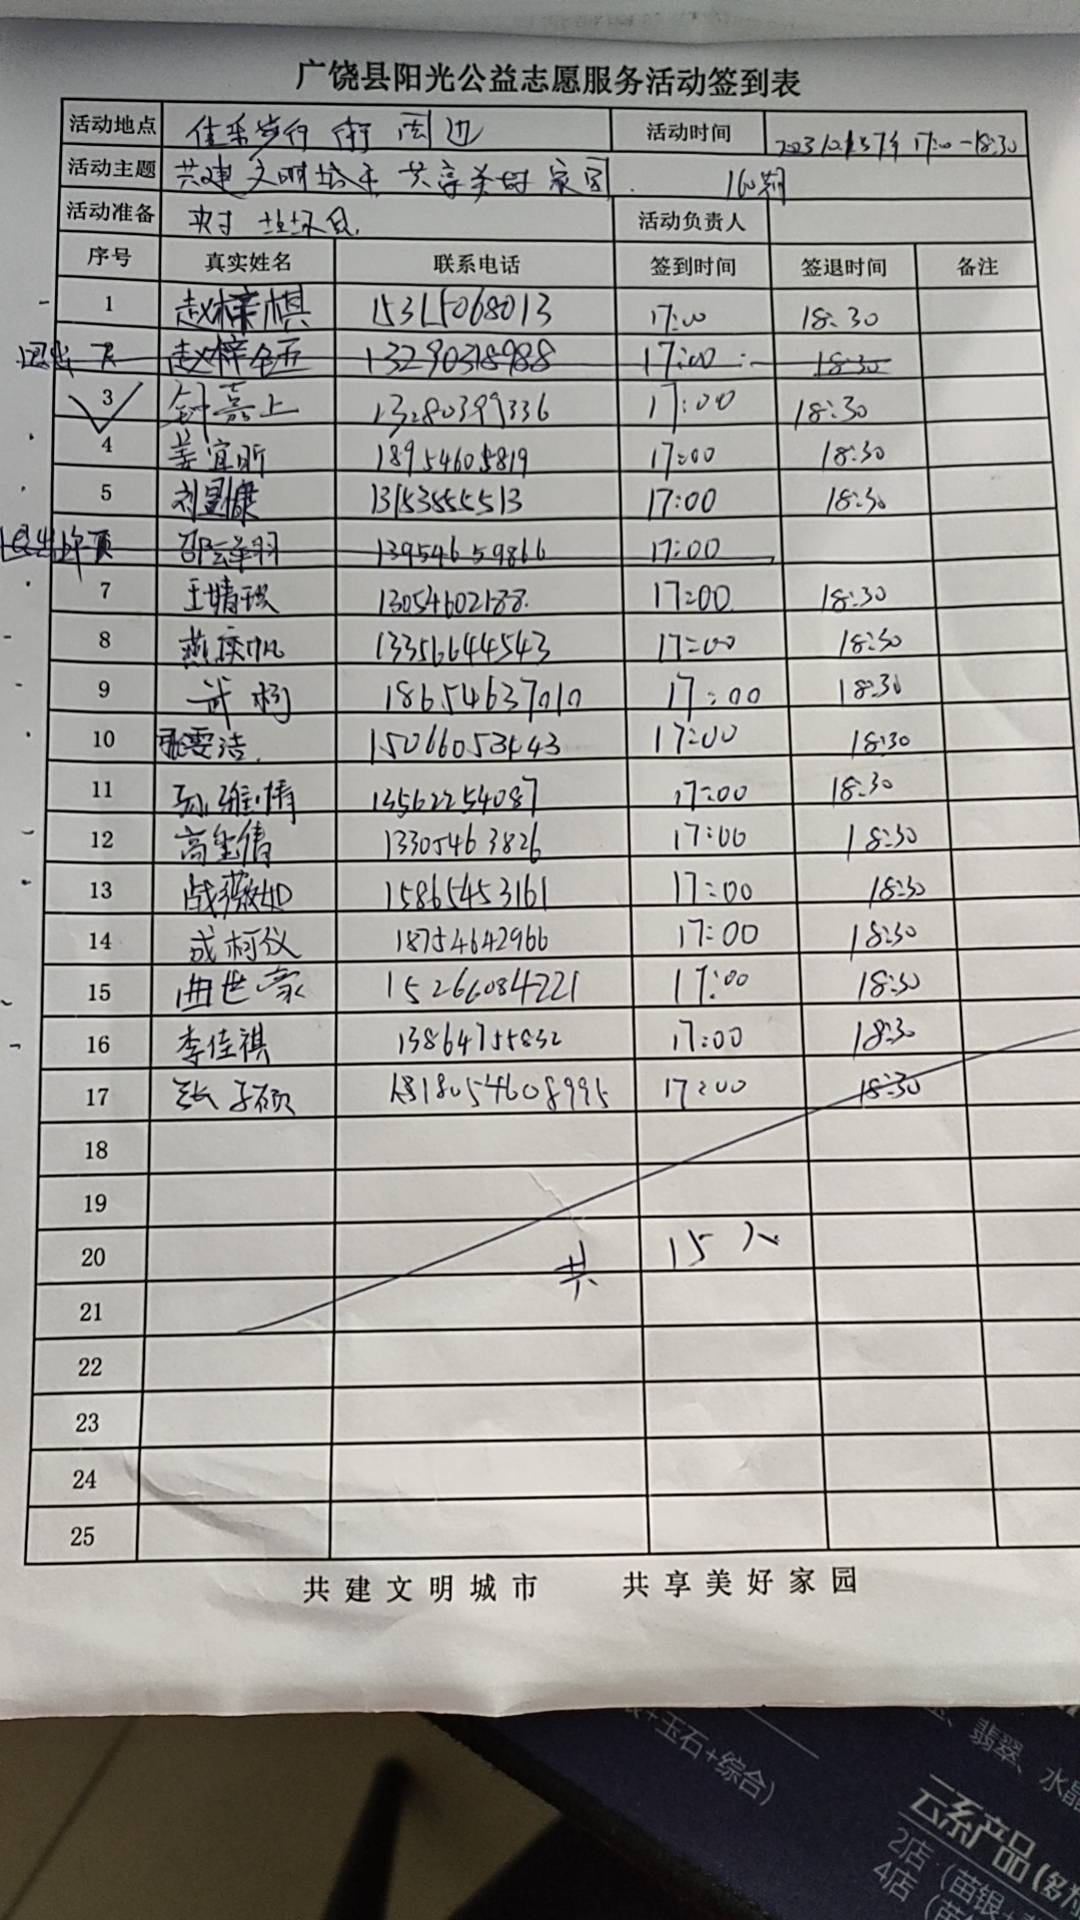 广饶县阳光公益志愿服务活动签到表
活动地点 佳乐步行街周边 活动时间 17:00-18:30
活动主题 共建文明城市 共享美好家园 160期
活动准备 夹子 垃圾袋 活动负责人
序号 真实姓名 联系电话 签到时间 签退时间 备注
1 赵梓棋 15315068013 17:00 18:30
赵梓 13290318988 17:00 18:30
3 钟嘉上 13280399336 17:00 18:30
4 姜宜昕 18954605819 17:00 18:30
5 刘 康 13153855513 17:00 18:30
邵泽羽 13954659866 17:00
7 王婧琪 13054602188 17:00 18:30
8 燕 帆 13356644543 17:00 18:30
9 武杨 18654637010 17:00 18:30
10 张雯洁 15066053443 17:00 18:30
11 孙雅倩 13562254087 17:00 18:30
12 高 倩 13305463826 17:00 18:30
13 战薇如 15865453161 17:00 18:30
14 成柯仪 18754642966 17:00 18:30
15 曲世豪 15266084221 17:00 18:30
16 李佳祺 13864755832 17:00 18:30
17 张子硕 17:00 18:30
18
19
20 共 15人
21
22
23
24
25
共建文明城市 共享美好家园
+玉石+综合)
翡翠、水晶
云系产品(多
2店(苗银+
4店(苗